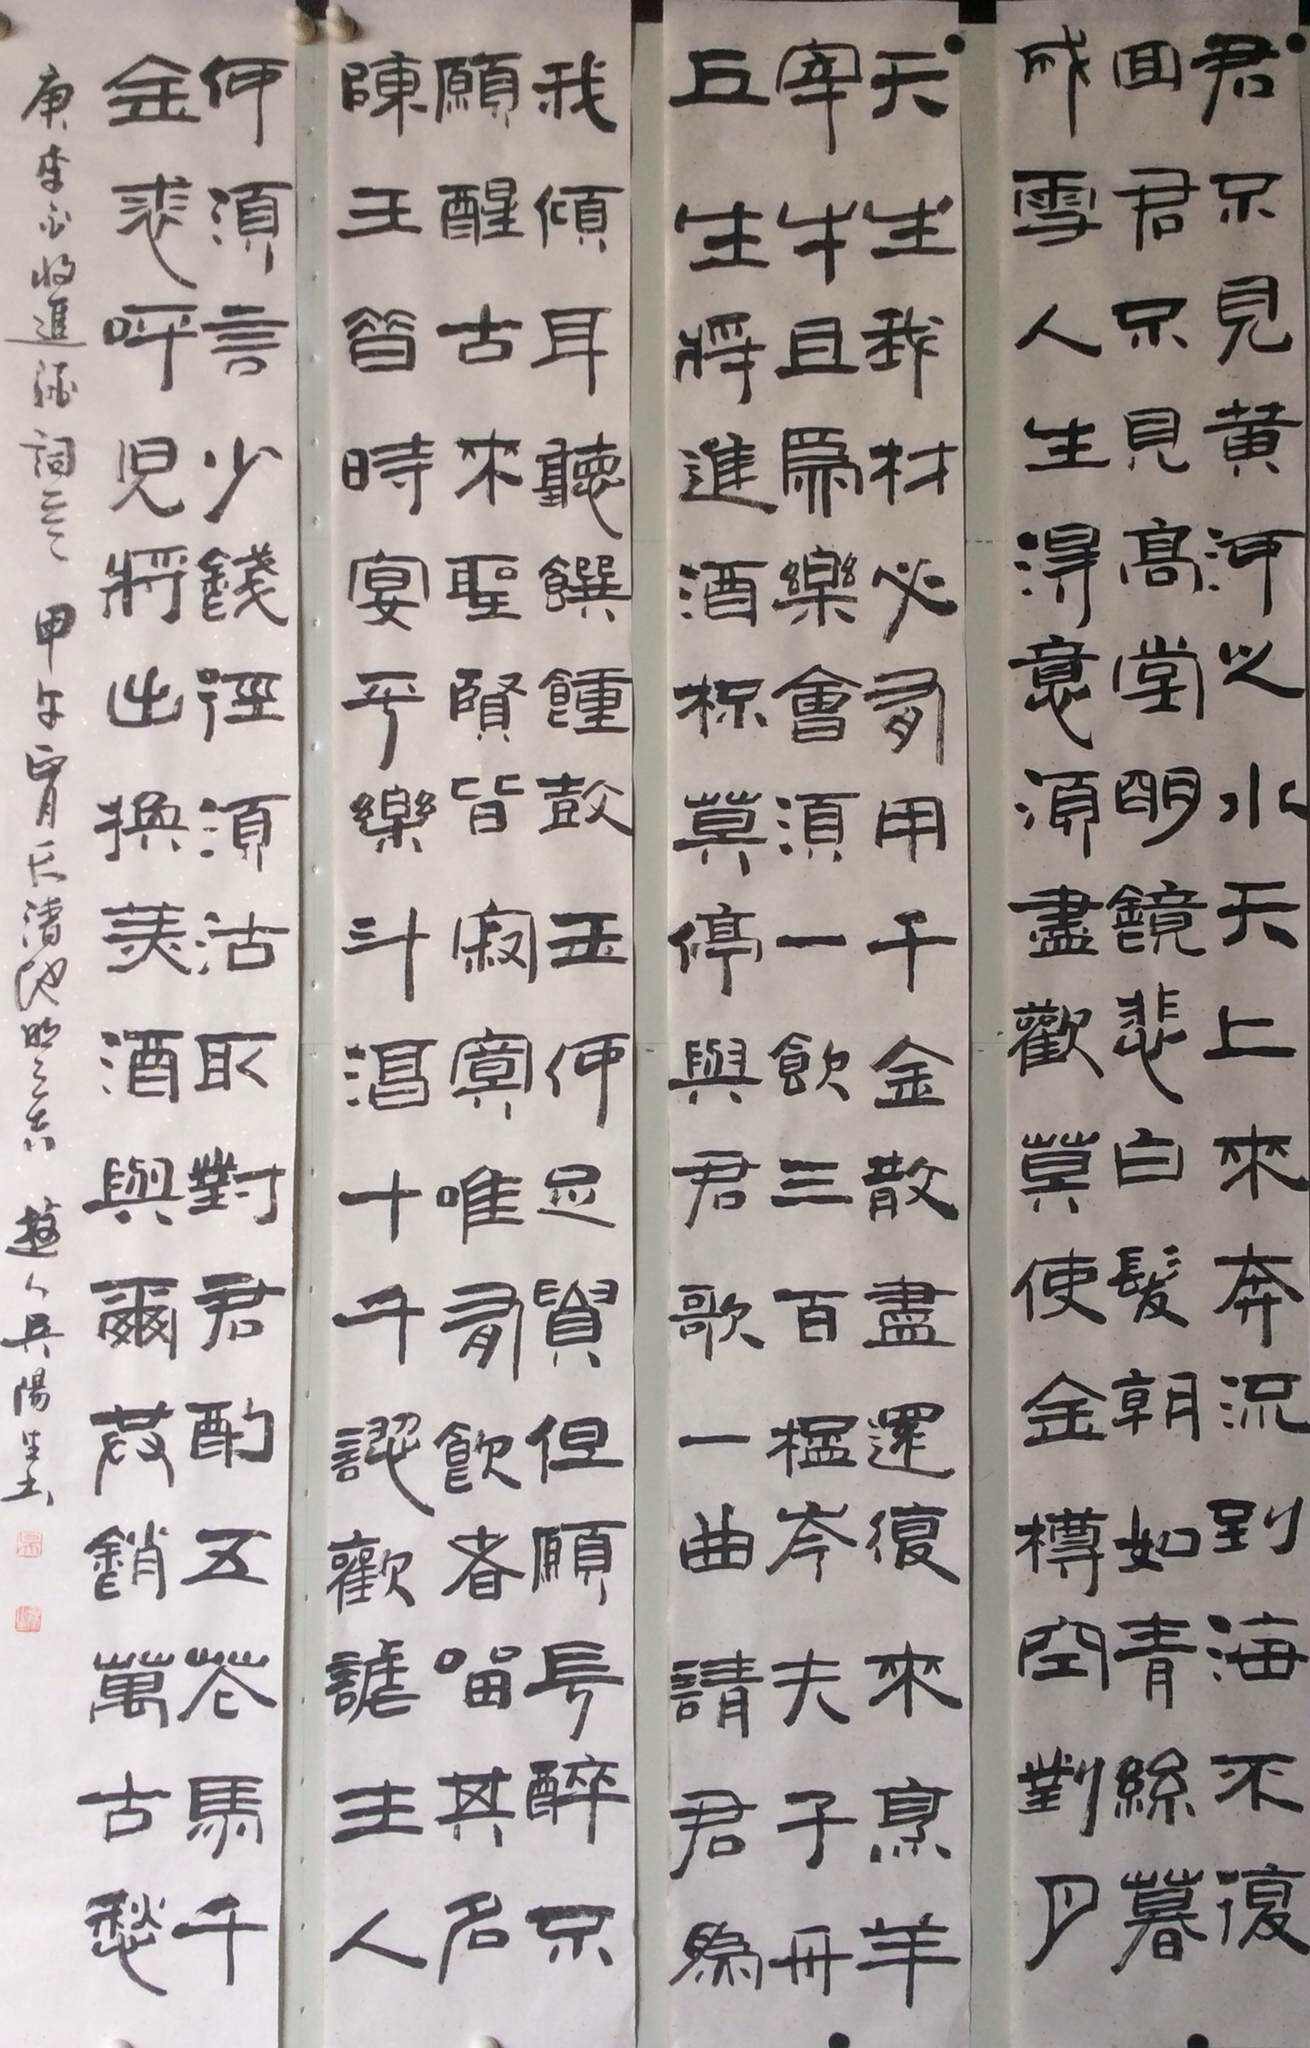 君不見黄河之水天上來奔流到海不復
回君不見高堂明鏡悲白髮朝如青絲暮
成雪人生得意須盡歡莫使金樽空對月
天生我材必有用千金散盡還復來烹羊
宰牛且爲樂會須一飲三百桮岑夫子丹
丘生將進酒桮莫停與君歌一曲請君爲
我傾耳聽饌鍾鼓玉何足貴但願長醉不
願醒古來聖賢皆寂寞唯有飲者留其名
陳王昔時宴平樂斗酒十千恣歡謔主人
何須言少錢徑須沽取對君酌五花馬千
金裘呼兒將出換美酒與爾共銷萬古愁
唐李白將進酒詞意 甲午